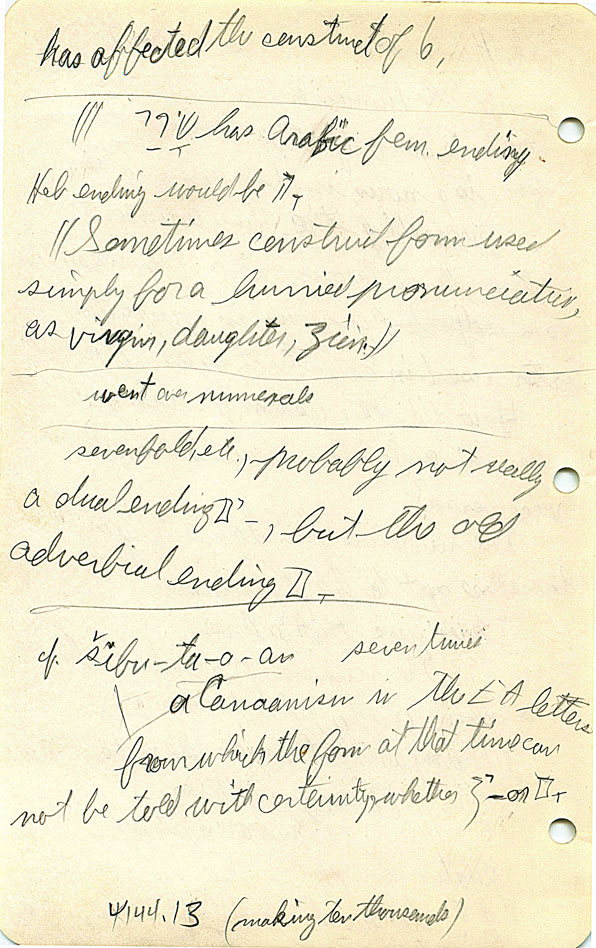 has affected the construct of 6,
/// has Arabic fem. ending.
Heb ending would be ת ָ
// Sometimes construct form used
simply for a hurried pronunciation,
as virgin, daughter, Zion. //
went over numerals
sevenfold, etc., probably not really
a dual ending ם ַ י, but the old
adverbial ending ם ָ
cf. šibu-ta-a-an seven times
a Canaanism in the EA letters
from which the form at that time can
not be told with certainty, whether or ם ָ
4144.13 (making ten thousands)